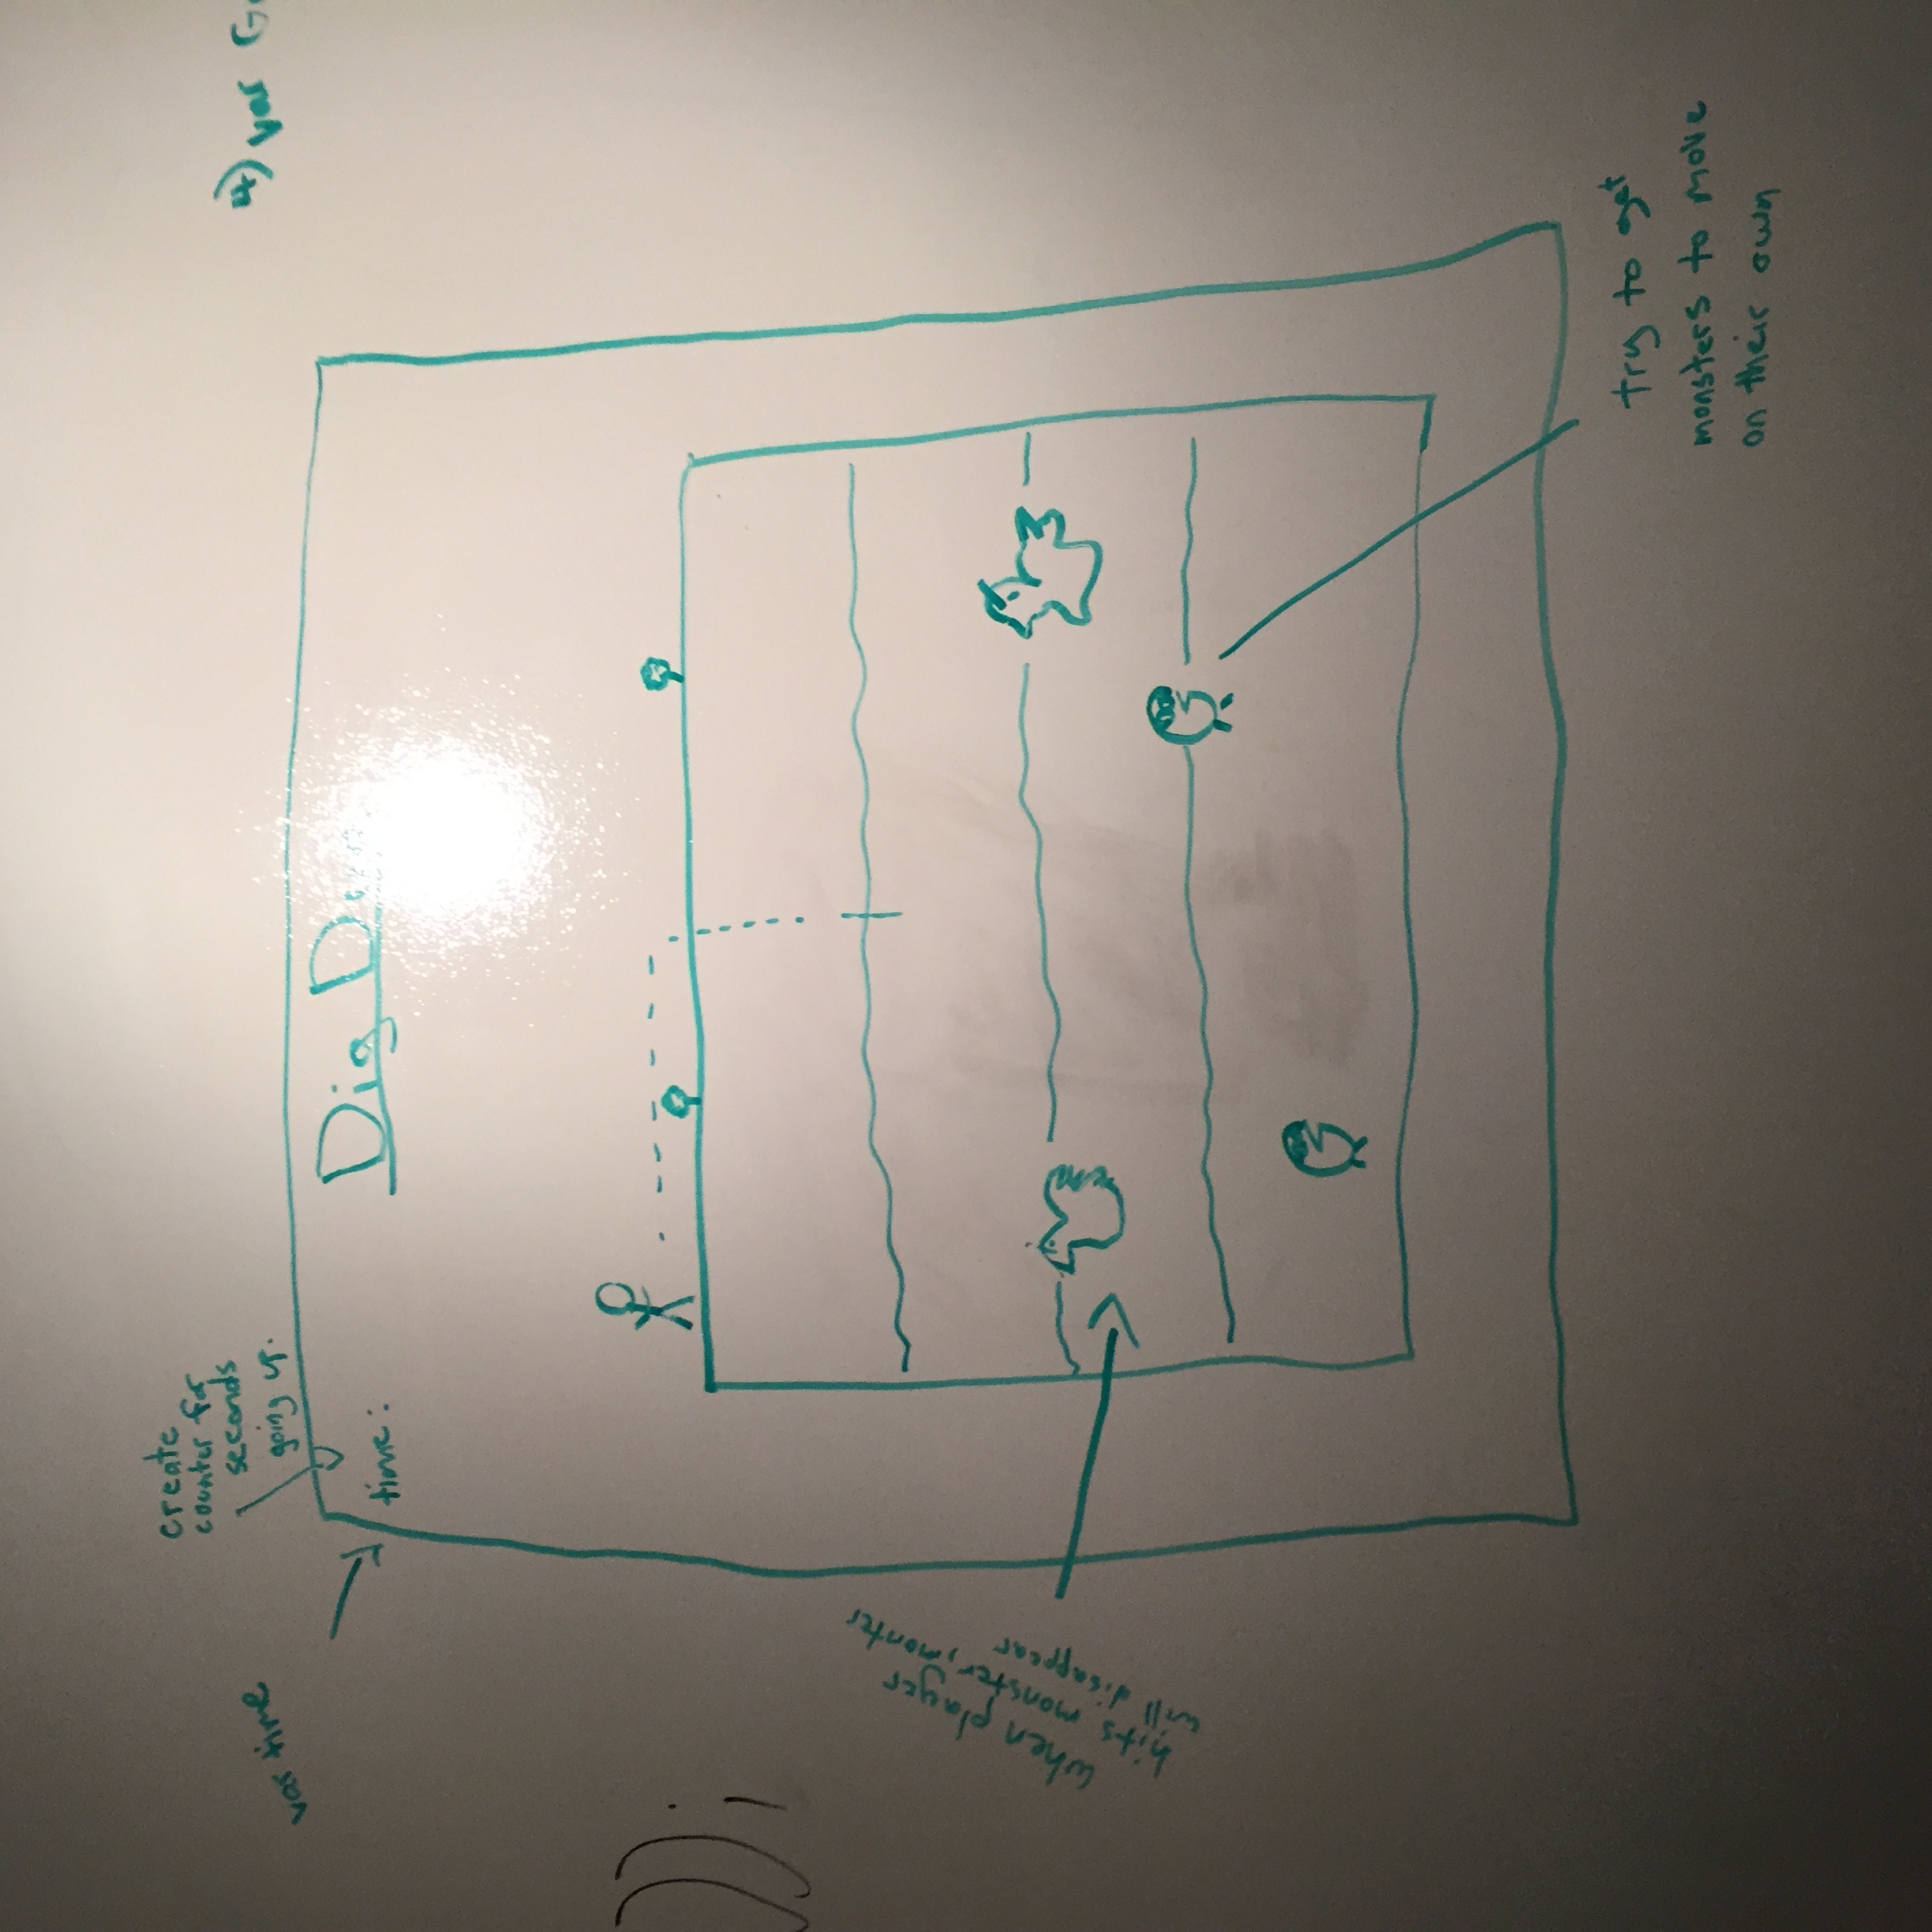 create
counter for
seconds
going up.
var time
4) var
time:
Dig
));
when player
hits monster, monter
will disappear
try to get
monsters to move
on their own